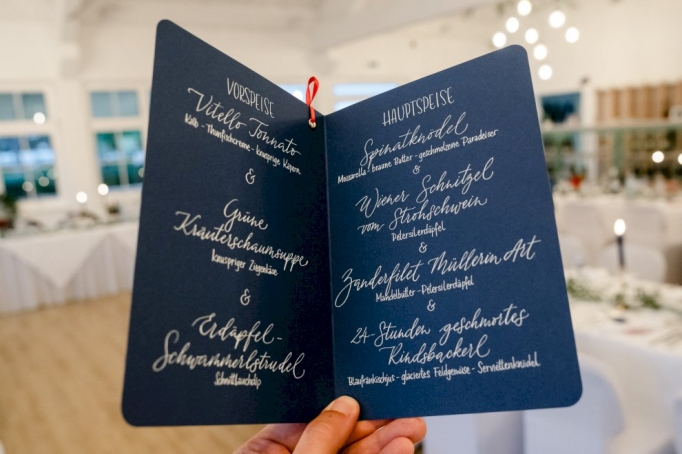 VORSPEISE
Vitello Tonnato
Kalb - Thunfischcreme - knusprige Kapern
&
Grüne
Kräuterschaumsuppe
knuspriger Ziegenkäse
&
Erdäpfel-
Schwammerlstrudel
Schnittlauchdip
HAUPTSPEISE
Spinatknödel
Mozzarella - braune Butter - geschmolzene Paradeiser
&
Wiener Schnitzel
vom Strohschwein
Petersilerdäpfel
&
Zanderfilet Müllerin Art
Mandelbutter - Petersilerdäpfel
&
24-Stunden geschmortes
Rindsbackerl
Blaufränkischjus - glaciertes Feldgemüse - Serviettenknödel